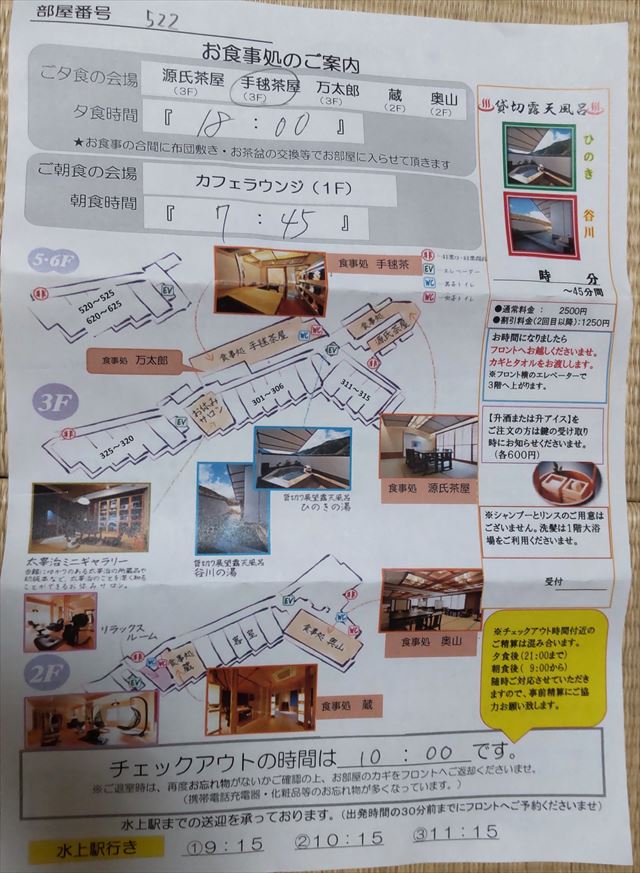 部屋番号 522
お食事処のご案内
ご夕食の会場 源氏茶屋(3F) 手毬茶屋(3F) 万太郎(3F) 蔵(2F) 奥山(2F)
夕食時間 『 18 : 00 』
★お食事の合間に布団敷き・お茶盆の交換等でお部屋に入らせて頂きます
ご朝食の会場 カフェラウンジ(1F)
朝食時間 『 7 : 45 』
♨貸切露天風呂♨
ひのき
谷川
時 分
～45分間
●通常料金： 2500円
●割引料金(2回目以降):1250円
お時間になりましたら
フロントへお越しくださいませ。
カギとタオルをお渡しします。
※フロント横のエレベーターで
3階へ上がります。
【升酒または升アイス】を
ご注文の方は鍵の受け取り
時にお知らせくださいませ。
(各600円)
※シャンプーとリンスのご用意は
ございません。洗髪は1階大浴
場をご利用くださいませ。
受付
5・6F
520～525
620～625
EV
食事処 手毬茶
EV エレベーター
WC 男子トイレ
WC 女子トイレ
食事処 万太郎
食事処 手毬茶屋
WC WC
食事処 源氏茶屋
3F
325～320
EV
お休み サロン
301～306
EV
311～315
太宰治ミニギャラリー
貸切り展望露天風呂
谷川の湯
貸切り展望露天風呂
ひのきの湯
食事処 源氏茶屋
リラックス
ルーム
2F
WC WC
食事処 蔵
客室
EV
食事処 奥山
WC WC
食事処 蔵
食事処 奥山
※チェックアウト時間付近の
ご精算は混み合います。
夕食後(21:00まで)
朝食後( 9:00から)
随時ご対応させていただき
ますので、事前精算にご協
力お願い致します。
チェックアウトの時間は 10 : 00 です。
※ご退室時は、再度お忘れ物がないかご確認の上、お部屋のカギをフロントへご返却くださいませ。
(携帯電話充電器・化粧品等のお忘れ物が多くなっています。)
水上駅までの送迎を承っております。(出発時間の30分前までにフロントへご予約くださいませ)
水上駅行き ①9：15 ②10：15 ③11：15